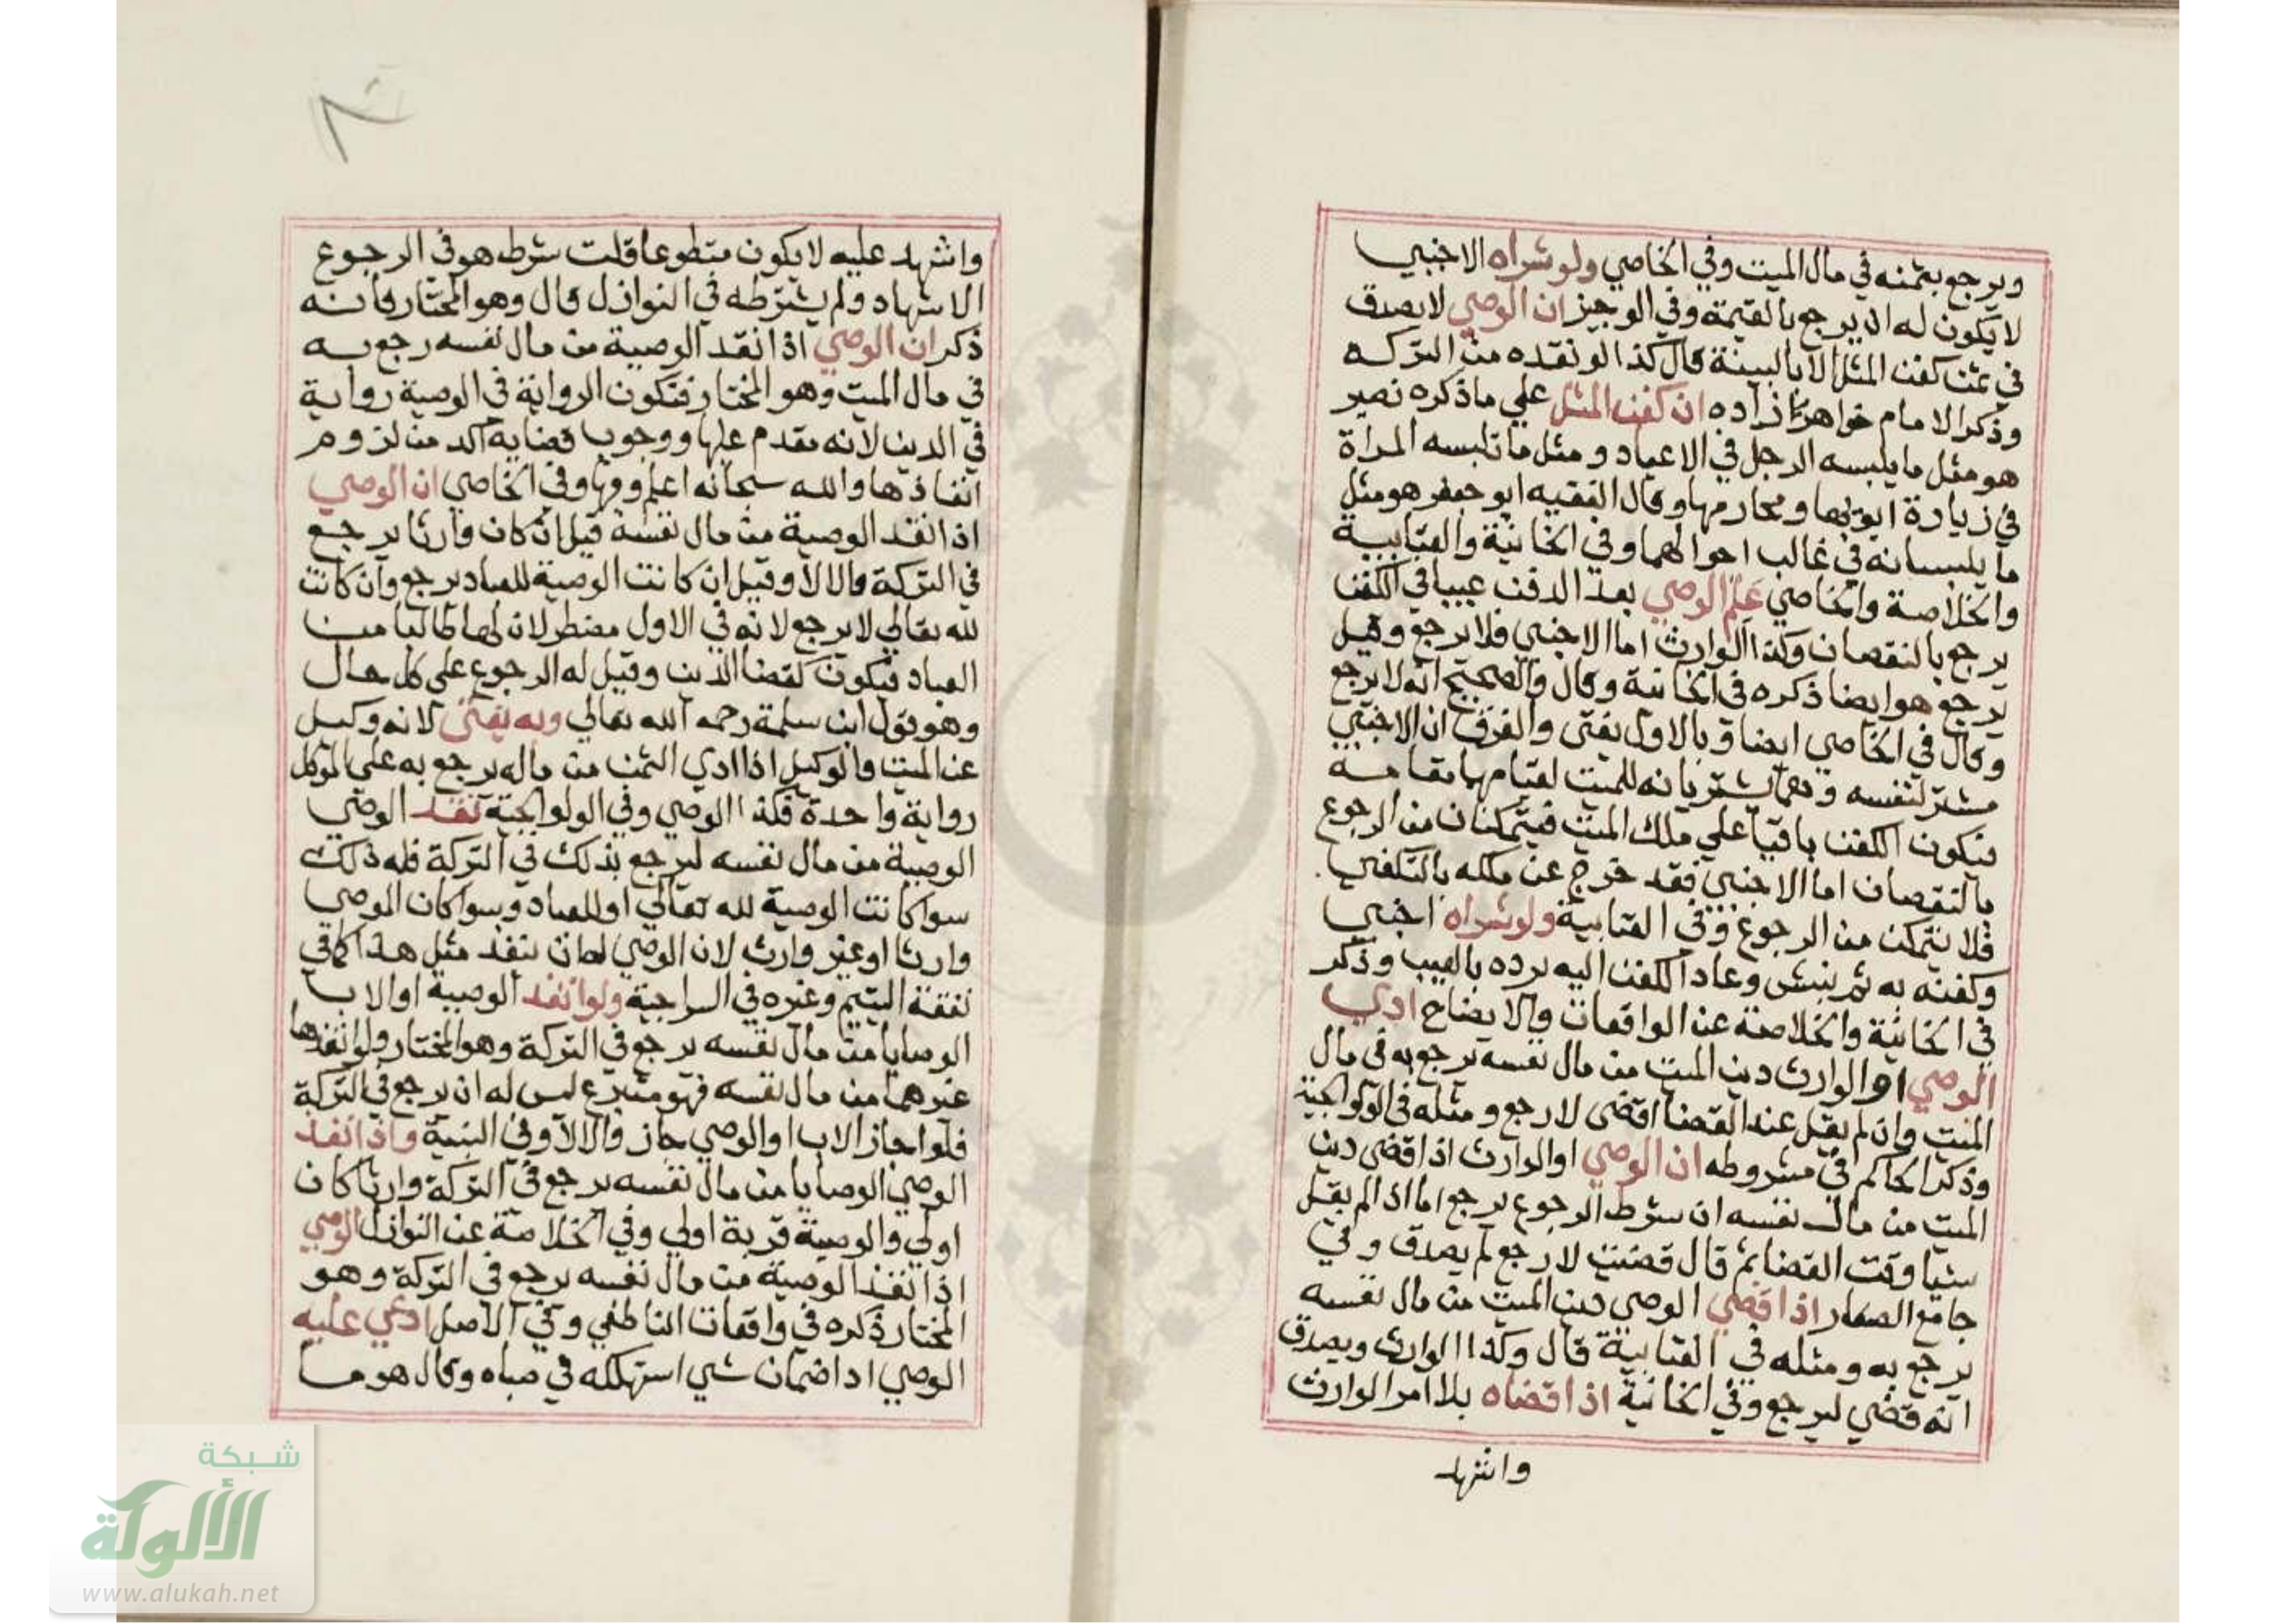 ويرجع بثمنه في مال الميت وفي الخاصي ولو شراه الاجنبي
لا يكون له ان يرجع بالقيمة وفي الوجيز ان الوصي لا يصدق
في ثمن كفن المثل الا بالبينة قال كذا لو نقده من التركه
وذكر الامام خواهر زاده ان كفن المثل علي ما ذكره نصير
هو مثل ما يلبسه الرجل في الاعياد ومثل ما تلبسه المراة
في زيارة ابويها ومحارمها وقال الفقيه ابو جعفر هو مثل
ما يلبسانه في غالب احوالهما وفي الخانية والعتابية
والخلاصة والخاصي علم الوصي بعد الدفن عيبا في الكفن
يرجع بالنقصان وكذا الوارث اما الاجنبي فلا يرجع وقيل
يرجع هو ايضا ذكره في الخانية وقال والصحيح انه لا يرجع
وقال في الخاصي ايضا وبالاول يفتى والفرق ان الاجنبي
مشتر لنفسه وهما يشتريانه للميت لقيامهما مقامه
فيكون الكفن باقيا علي ملك الميت فيتمكنان من الرجوع
بالنقصان اما الاجنبي فقد خرج عن ملكه بالتكفين
فلا يتمكن من الرجوع وفي العتابية ولو شراه اجنبي
وكفنه به ثم نبش وعاد الكفن اليه يرده بالعيب وذكر
في الخانية والخلاصة عن الواقعات والايضاح ادي
الوصي او الوارث دين الميت من مال نفسه يرجع به في مال
الميت وان لم يقل عند القضا اقضى لارجع ومثله في الولوالجية
وذكر الحاكم في مشروطه ان الوصي او الوارث اذا قضى دين
الميت من مال نفسه ان شرط الرجوع يرجع اما اذا لم يقل
شيا وقت القضا ثم قال قضيت لارجع لم يصدق وفي
جامع الصغار اذا قضي الوصي دين الميت من مال نفسه
يرجع به ومثله في العتابية قال وكذا الوارث ويصدق
انه قضي ليرجع وفي الخانية اذا قضاه بلا امر الوارث
واشهد
واشهد عليه لا يكون متطوعا قلت شرط هو في الرجوع
الاشهاد ولم يشترطه في النوازل قال وهو المختار فانه
ذكر ان الوصي اذا انفذ الوصية من مال نفسه رجع به
في مال الميت وهو المختار فتكون الرواية في الوصية رواية
في الدين لانه مقدم عليها ووجوب قضايه آكد من لزوم
انفاذها والله سبحانه اعلم وفيها وفي الخاصي ان الوصي
اذا انفذ الوصية من مال نفسه قيل ان كان وارثا يرجع
في التركة والا لا وقيل ان كانت الوصية للعباد يرجع وان كانت
لله تعالي لا يرجع لانه في الاول مضطر لان لها طالبا من
العباد فيكون كقضا الدين وقيل له الرجوع على كل حال
وهو قول ابن سلمة رحمه الله تعالي وبه يفتى لانه وكيل
عن الميت والوكيل اذا ادي الثمن من ماله يرجع به علي الموكل
رواية واحدة فكذا الوصي وفي الولوالجية نفذ الوصي
الوصية من مال نفسه ليرجع بذلك في التركة فله ذلك
سوا كانت الوصية لله تعالي او للعباد وسوا كان الموصي
وارثا او غير وارث لان الوصي لما نفذ مثل هذا كما في
نفقة اليتيم وغيره في السراجية ولو انفذ الوصية او الاب
الوصايا من مال نفسه يرجع في التركة وهو المختار ولو انفذها
غيرهما من مال نفسه فهو متبرع ليس له ان يرجع في التركة
فلو اجاز الاب او الوصي جاز والا لا وفي البنية واذا انفذ
الوصي الوصايا من مال نفسه يرجع في التركة وارثا كان
اولي والوصية قربة اولي وفي الخلاصة عن النوازل الوصي
اذا نفذ الوصية من مال نفسه يرجع في التركة وهو
المختار ذكره في واقعات الناطفي وفي الاصل ادعي عليه
الوصي ادا ضمان شي استهلكه في صباه وقال هو ما
شبكة
الألوكة
www.alukah.net